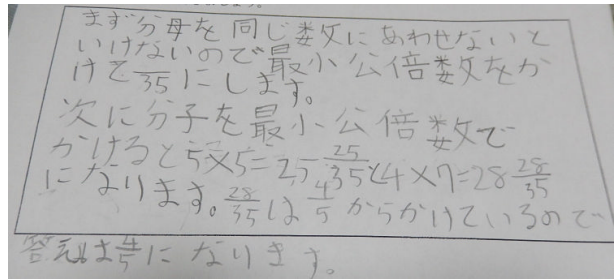 まず分母を同じ数にあわせないと
いけないので最小公倍数をか
けて/35にします。
次に分子を最小公倍数で
かけると5×5=25 25/35と4×7=28 28/35
になります。28/35は4/5からかけているので
答えは4/5になります。